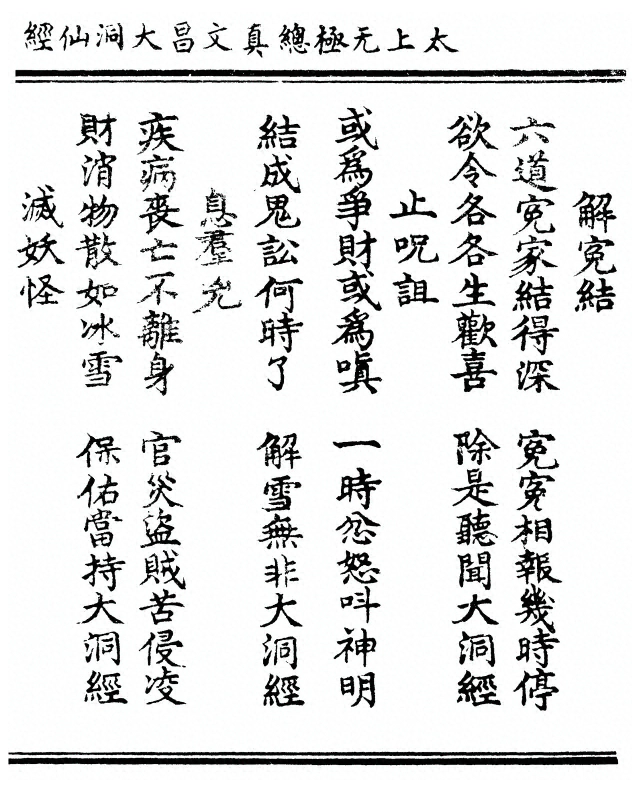 太上无極總真文昌大洞仙經
解寃結
六道寃家結得深　寃寃相報幾時停
欲令各各生歡喜　除是聽聞大洞經
止呪詛
或爲爭財或爲嗔　一時忿怒呌神明
結成鬼訟何時了　解雪無非大洞經
息羣兇
疾病喪亡不離身　官災盜賊苦侵凌
財消物散如冰雪　保佑當持大洞經
滅妖怪